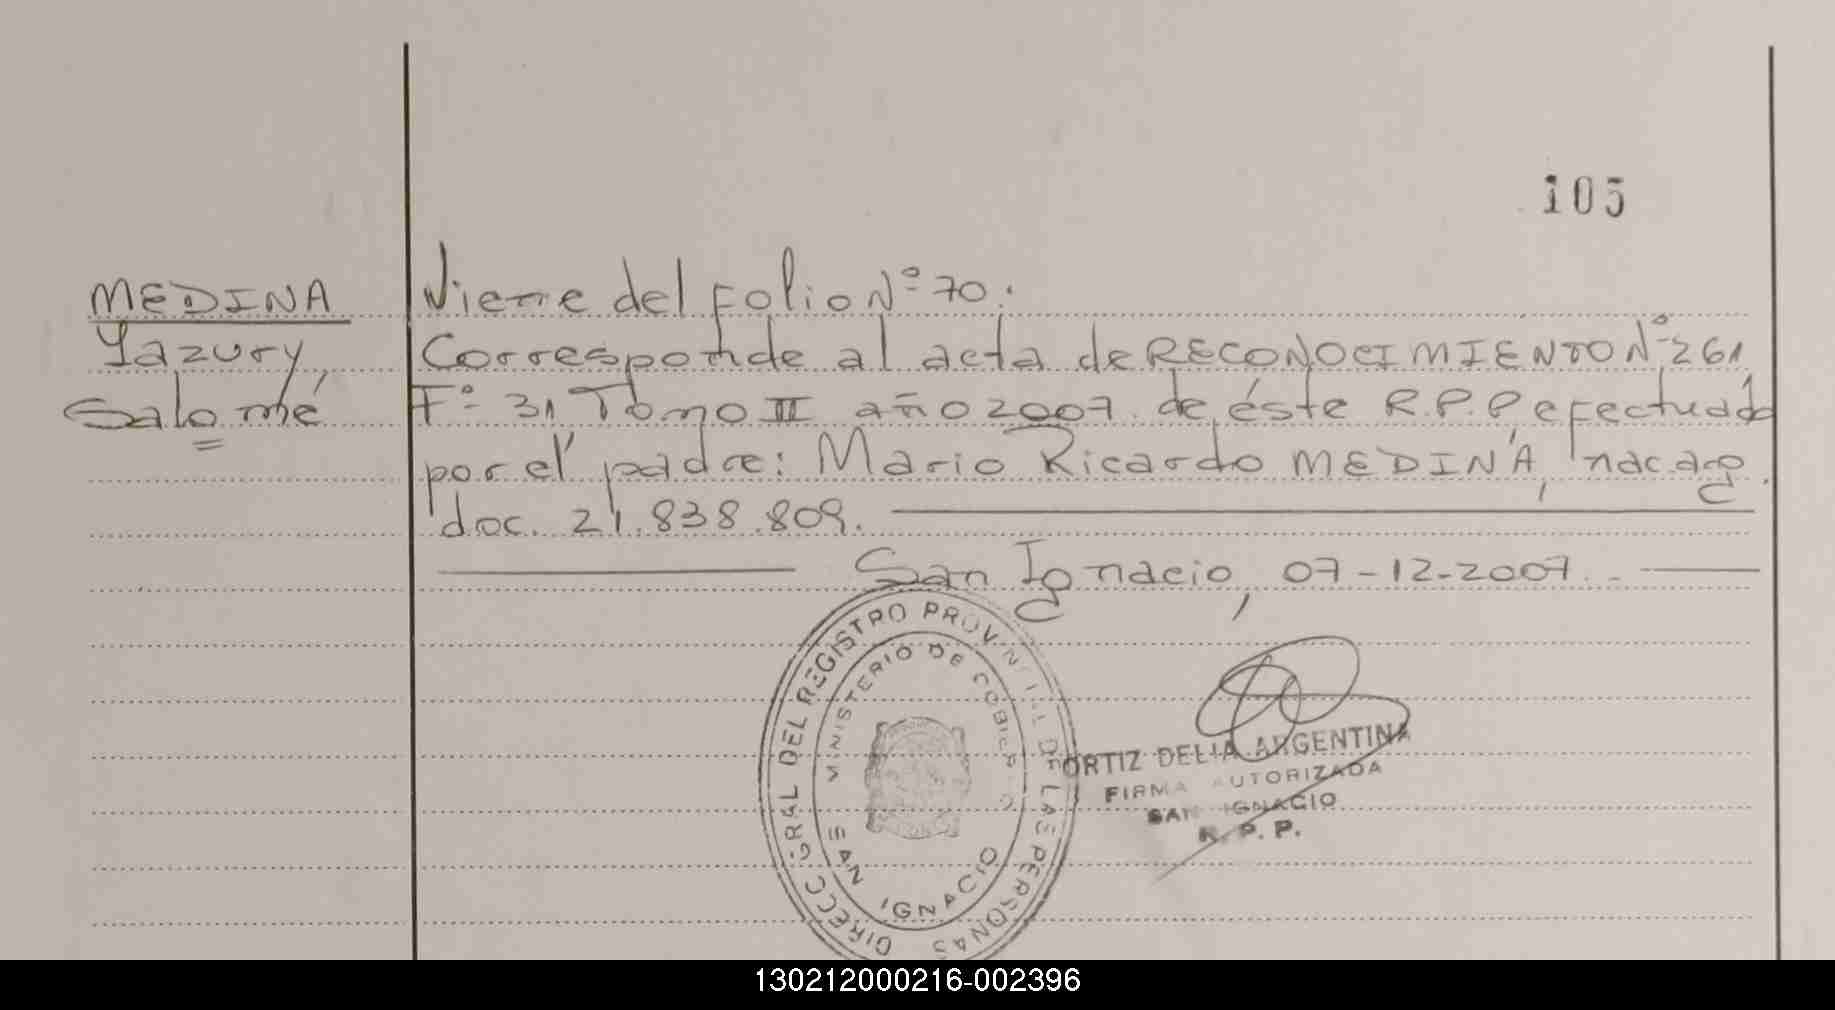 105
MEDINA
Yazury
Salomé
Viene del Folio Nº 70.
Corresponde al acta de RECONOCIMIENTO Nº 261
Fº 31 Tomo III año 2007 de éste R.P.P efectuado
por el padre: Mario Ricardo MEDINA, nac. arg.
doc. 21.838.809.
San Ignacio, 07-12-2007.
DIRECC. GRAL DEL REGISTRO PROVINCIAL DE LAS PERSONAS
MINISTERIO DE GOBIERNO
SAN IGNACIO
ORTIZ DELIA ARGENTINA
FIRMA AUTORIZADA
SAN IGNACIO
R. P. P.
130212000216-002396